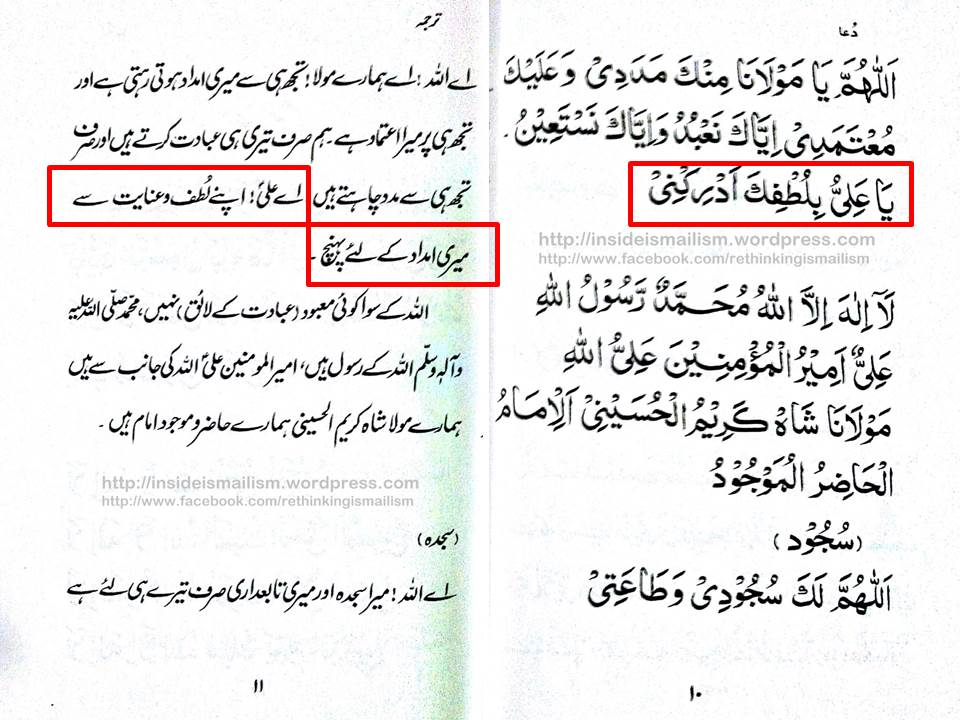 دُعا
اَللّٰهُمَّ يَا مَوْلَانَا مِنْكَ مَدَدِىْ وَعَلَيْكَ
مُعْتَمَدِىْ اِيَّاكَ نَعْبُدُ وَاِيَّاكَ نَسْتَعِيْنُ.
يَا عَلِىُّ بِلُطْفِكَ اَدْرِكْنِىْ
http://insideismailism.wordpress.com
http://www.facebook.com/rethinkingismailism
لَآ اِلٰهَ اِلَّا اللهُ مُحَمَّدٌ رَّسُوْلُ اللهِ
عَلِىٌّ اَمِيْرُ الْمُؤْمِنِيْنَ عَلِىُّ اللهِ
مَوْلَانَا شَاهْ كَرِيْمُ الْحُسَيْنِىْ اَلْاِمَامُ
الْحَاضِرُ الْمَوْجُوْدُ
(سُجُوْد)
اَللّٰهُمَّ لَكَ سُجُوْدِىْ وَطَاعَتِىْ
۱۰
ترجمہ
اے اللہ! اے ہمارے مولا! تجھ ہی سے میری امداد ہوتی رہتی ہے اور
تجھ ہی پر میرا اعتماد ہے۔ ہم صرف تیری ہی عبادت کرتے ہیں اور صرف
تجھ ہی سے مدد چاہتے ہیں اے علیؑ! اپنے لُطف وعنایت سے
میری امداد کے لئے پہنچ۔
اللہ کے سوا کوئی معبود (عبادت کے لائق) نہیں، محمد صلّی اللہ علیہ
وآلہٖ وسلّم اللہ کے رسول ہیں، امیرالمومنین علیؑ اللہ کی جانب سے ہیں
ہمارے مولا شاہ کریم الحسینی ہمارے حاضر وموجود امام ہیں۔
http://insideismailism.wordpress.com
http://www.facebook.com/rethinkingismailism
(سجدہ)
اے اللہ! میرا سجدہ اور میری تابعداری صرف تیرے ہی لئے ہے
۱۱